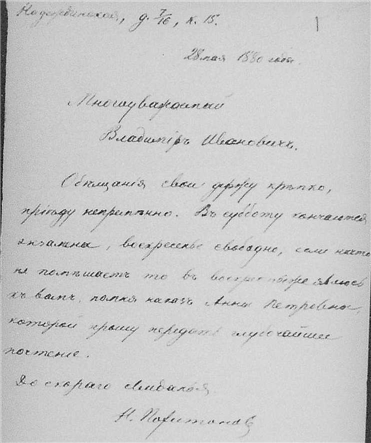 Надеждинская, д. 7/16, к. 15.
1
28 мая 1880 года.
Многоуважаемый
Владимiръ Ивановичъ.
Обѣщанiя свои держу крѣпко,
прiѣду непремѣнно. Въ субботу кончаются
экзамены, воскресенье свободно, если никто
не помѣшаетъ то въ воскресенье же явлюсь
къ вамъ, помня наказъ Анны Петровны,
которой прошу передать глубочайшее
почтенiе.
До скораго свиданья
Н.